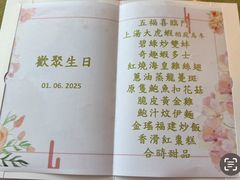 歡聚生日
01. 06. 2025
五福喜臨門
上湯大虎蝦
碧綠炒雙蚌
奇趣蝦多士
紅燒海皇雞絲翅
蔥油蒸龍躉斑
原隻鮑魚扣花菇
脆皮黃金雞
鮑汁炆伊麵
金瑤福建炒飯
香滑紅棗糕
合時甜品